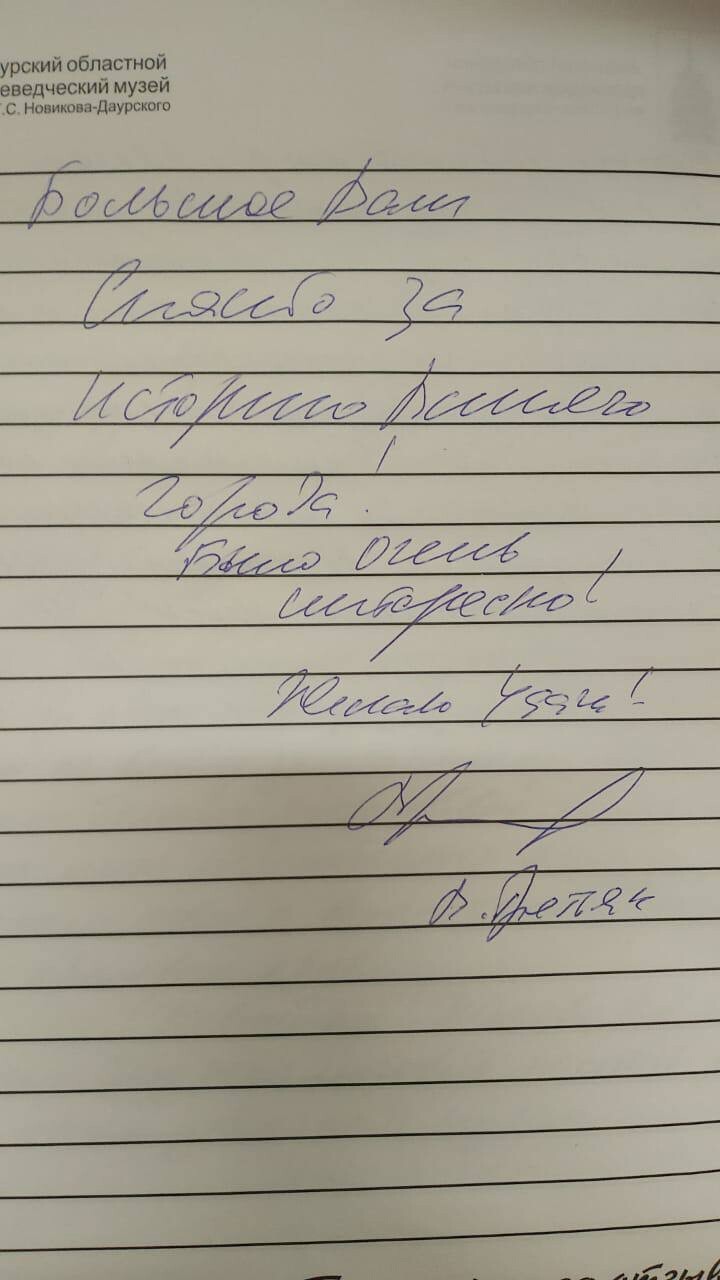 урский областной
еведческий музей
Г.С. Новикова-Даурского
Большое Вам
Спасибо за
Историю Вашего
города!
Было очень
интересно!
Желаю Удачи!